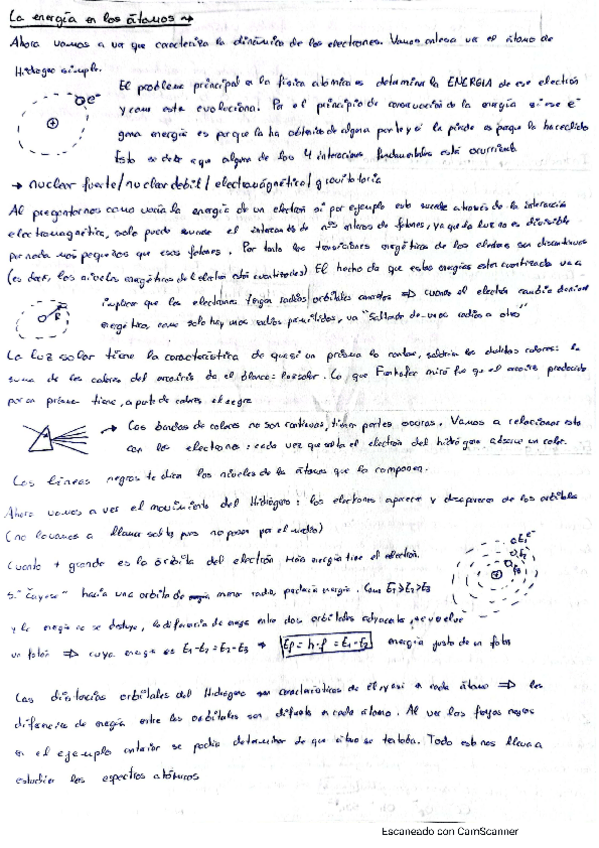 La energía en los átomos →
Ahora vamos a ver que caracteriza la dinámica de los electrones. Vamos a ver el átomo de
Hidrógeno simple.
e⁻
+
El problema principal en la física atómica es determinar la ENERGIA de ese electrón
y como este evoluciona. Por el principio de conservación de la energía si ese e⁻
gana energía es porque la ha obtenido de alguna parte y si la pierde es porque la ha cedido
Esto se debe a que alguna de las 4 interacciones fundamentales está ocurriendo
→ nuclear fuerte/nuclear debil/electromagnética/gravitatoria
Al preguntarnos como varía la energía de un electrón si por ejemplo esto sucede a través de la interacción
electromagnética, solo puede suceder el intercambio de nos enteros de fotones, ya que la luz no es divisible
por nada más pequeños que esos fotones. Por tanto las transiciones energéticas de los electrones son discontinuas
(es decir, los niveles energéticos del electrón están cuantizados) El hecho de que estas energías esten cuantizada va a
implicar que los electrones tengan radios orbitales concretos ⇒ cuando el electrón cambia de nivel
energético, como solo hay unos radios permitidos, va "Saltando de unos radios a otro"
La luz solar tiene la característica de que si un prisma la rompe, saldrían los distintos colores: la
suma de los colores del arcoiris da el blanco: luz solar. Lo que miró fue que el arcoiris producido
por un prisma tiene, a parte de colores el negro
→ Las bandas de colores no son continuas, tienen partes oscuras. Vamos a relacionar esto
con los electrones: cada vez que salta el electrón del hidrógeno absorve un color.
Las líneas negras te dicen los niveles de los átomos que la componen.
Ahora vamos a ver el movimiento del Hidrógeno: los electrones aparece y desaparece de las orbitales
(no lo vamos a llamar salto, pues no pasan por el medio)
Cuanto + grande es la órbita del electrón más energía tiene el electrón.
E₁ e⁻
E₂
E₃
+
Si "cayese" hacia una orbita de menor radio, perdería energía. Como E₁>E₂>E₃
y la energía no se destruye, la diferencia de energía entre dos orbitales se vuelve
un fotón ⇒ cuya energía es E₁-E₂=E₂-E₃ → Ef = h·f = E₁-E₂ energía justo de un fotón
Las distancias orbitales del Hidrógeno son características de él, y así en cada átomo ⇒ las
diferencias de energía entre los orbitales son difuntes en cada átomo. Al ver las franjas negras
en el ejemplo anterior se podía determinar de que átomo se trataba. Todo esto nos lleva a
estudiar los espectros atómicos
Escaneado con CamScanner